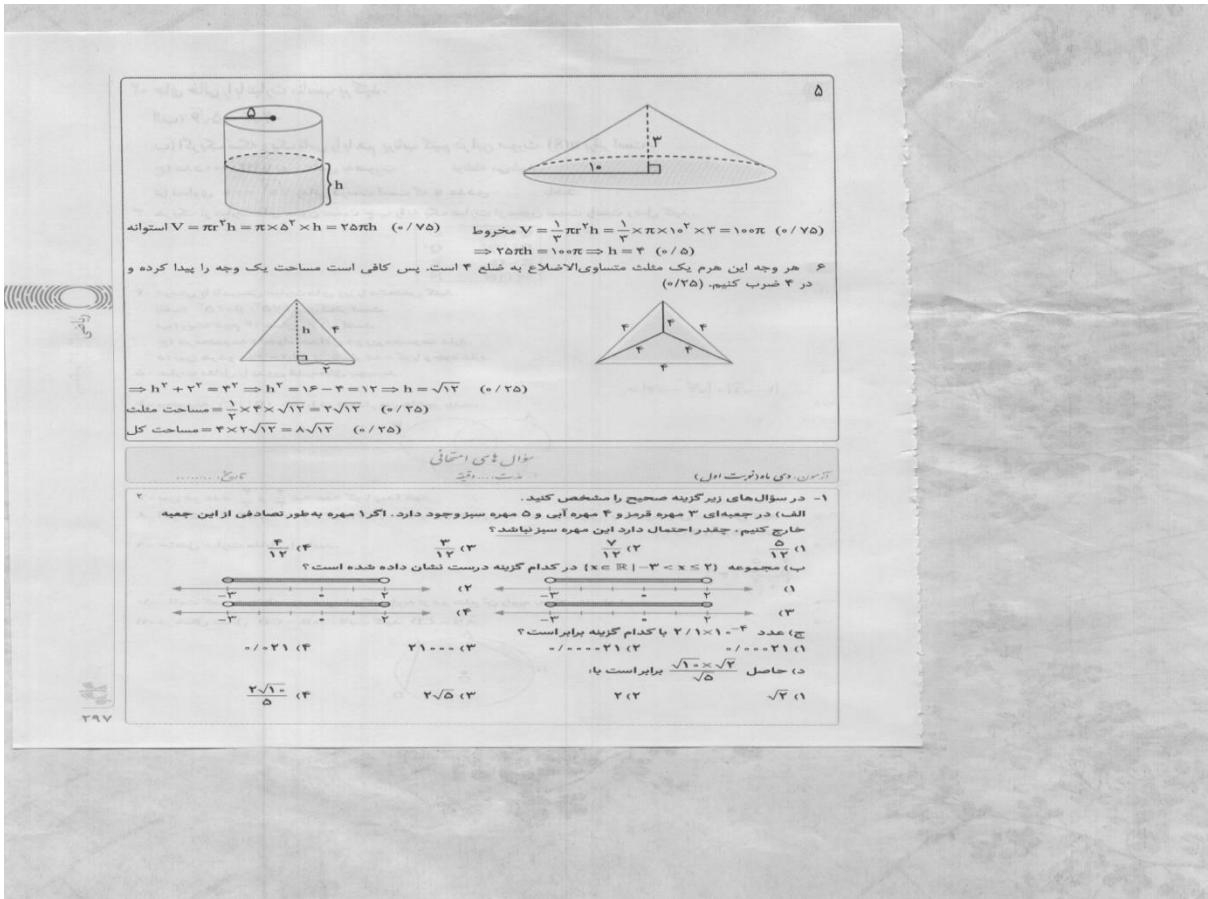 ۵
۵
h
۳
۱۰
مخروط V = ۱/۳ πr^۲h = ۱/۳ × π × ۱۰^۲ × ۳ = ۱۰۰π (۰/۷۵)
استوانه V = πr^۲h = π × ۵^۲ × h = ۲۵πh (۰/۷۵)
⇒ ۲۵πh = ۱۰۰π ⇒ h = ۴ (۰/۵)
۶ هر وجه این هرم یک مثلث متساوی‌الاضلاع به ضلع ۴ است. پس کافی است مساحت یک وجه را پیدا کرده و
در ۴ ضرب کنیم. (۰/۲۵)
۴ ۴
۴ ۴ ۴
۴
h ۴
۲
⇒ h^۲ + ۲^۲ = ۴^۲ ⇒ h^۲ = ۱۶ − ۴ = ۱۲ ⇒ h = √۱۲ (۰/۲۵)
مساحت مثلث = ۱/۲ × ۴ × √۱۲ = ۲√۱۲ (۰/۲۵)
مساحت کل = ۴ × ۲√۱۲ = ۸√۱۲ (۰/۲۵)
ریاضی
سؤال های امتحانی
آزمون: دی ماه (نوبت اول) مدت:....دقیقه تاریخ:.........
۱- در سؤال‌های زیر گزینه صحیح را مشخص کنید. ۲
الف) در جعبه‌ای ۳ مهره قرمز و ۴ مهره آبی و ۵ مهره سبز وجود دارد. اگر ۱ مهره به‌طور تصادفی از این جعبه
خارج کنیم، چقدر احتمال دارد این مهره سبز نباشد؟
۱) ۵/۱۲ ۲) ۷/۱۲ ۳) ۳/۱۲ ۴) ۴/۱۲
ب) مجموعه {x ∈ ℝ | −۳ < x ≤ ۲} در کدام گزینه درست نشان داده شده است؟
۱) −۳ ۰ ۲ ۲) −۳ ۰ ۲
۳) −۳ ۰ ۲ ۴) −۳ ۰ ۲
ج) عدد ۲/۱×۱۰^−۴ با کدام گزینه برابر است؟
۱) ۰/۰۰۰۲۱ ۲) ۰/۰۰۰۰۲۱ ۳) ۲۱۰۰۰ ۴) ۰/۰۲۱
د) حاصل √۱۰×√۲/√۵ برابر است با:
۱) √۲ ۲) ۲ ۳) ۲√۵ ۴) ۲√۱۰/۵
۲۹۷